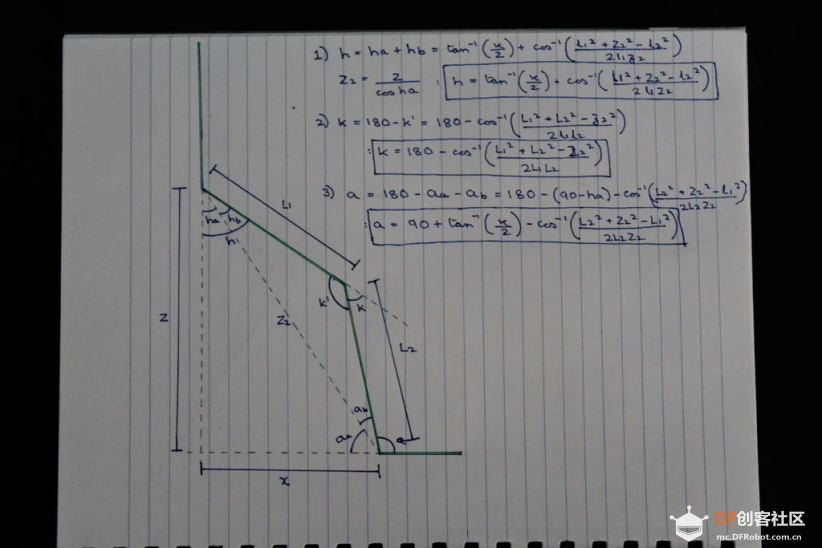 1) h = ha + hb = tan⁻¹(x/z) + cos⁻¹((L1² + Z2² - L2²)/(2L1Z2))
Z2 = z/cosha : h = tan⁻¹(x/z) + cos⁻¹((L1² + Z2² - L2²)/(2L1Z2))
2) k = 180 - k' = 180 - cos⁻¹((L1² + L2² - Z2²)/(2L1L2))
: k = 180 - cos⁻¹((L1² + L2² - Z2²)/(2L1L2))
3) a = 180 - aa - ab = 180 - (90 - ha) - cos⁻¹((L2² + Z2² - L1²)/(2L2Z2))
: a = 90 + tan⁻¹(x/z) - cos⁻¹((L2² + Z2² - L1²)/(2L2Z2))
L1
ha hb
h
k' k
Z
Z2
L2
ab
aa
a
x
DF创客社区
mc.DFRobot.com.cn